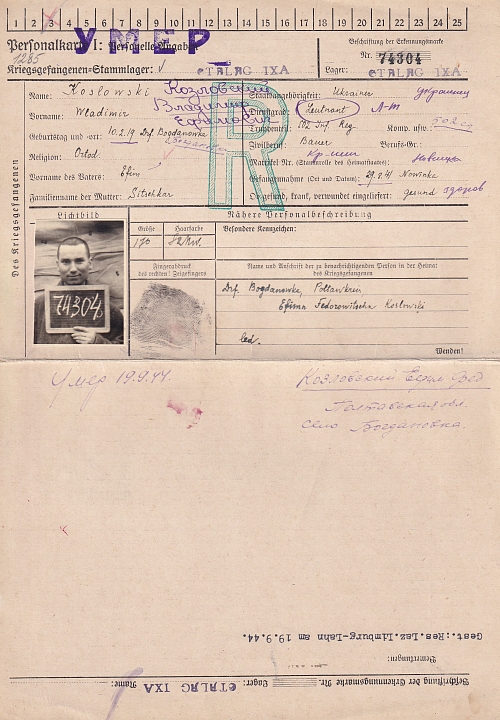 1 2 3 4 5 6 7 8 9 10 11 12 13 14 15 16 17 18 19 20 21 22 23 24 25
УМЕР
Personalkarte I: Personelle Angaben
1285
Kriegsgefangenen-Stammlager: STALAG IXA
Beschriftung der Erkennungsmarke
Nr. 74304
Lager: STALAG IXA
Des Kriegsgefangenen
Name: Koslowski
Козловский
Vorname: Wladimir
Владимир
Ефимович
Geburtstag und -ort: 10.2.19 Drf. Bogdanowka
Religion: Ortod.
Vorname des Vaters: Efim
Familienname der Mutter: Sitschkar
R
Staatsangehörigkeit: Ukrainer украинец
Dienstgrad: Leutnant Л-т
Truppenteil: 502 Inf. Reg. Komp. usw.: 502 сп
Zivilberuf: Bauer Berufs-Gr.:
Matrikel Nr. (Stammrolle des Heimatstaates):
Gefangennahme (Ort und Datum): 29.8.41 Nowinka
Ob gesund, krank, verwundet eingeliefert: gesund здоров
Lichtbild
74304
Nähere Personalbeschreibung
Größe Haarfarbe
170
Besondere Kennzeichen:
Fingerabdruck
des rechten! Zeigefingers
Name und Anschrift der zu benachrichtigenden Person in der Heimat
des Kriegsgefangenen
Drf. Bogdanowka, Poltawkreis
Efima Fedorowitscha Koslowski
led.
Wenden!
Умер 19.9.44.
Козловский Ефим Фед
Полтавская обл.
село Богдановка.
Gest.: Res.Laz.Limburg-Lahn am 19.9.44.
Bemerkungen:
Beschriftung der Erkennungsmarke Nr. Lager: STALAG IXA Name: